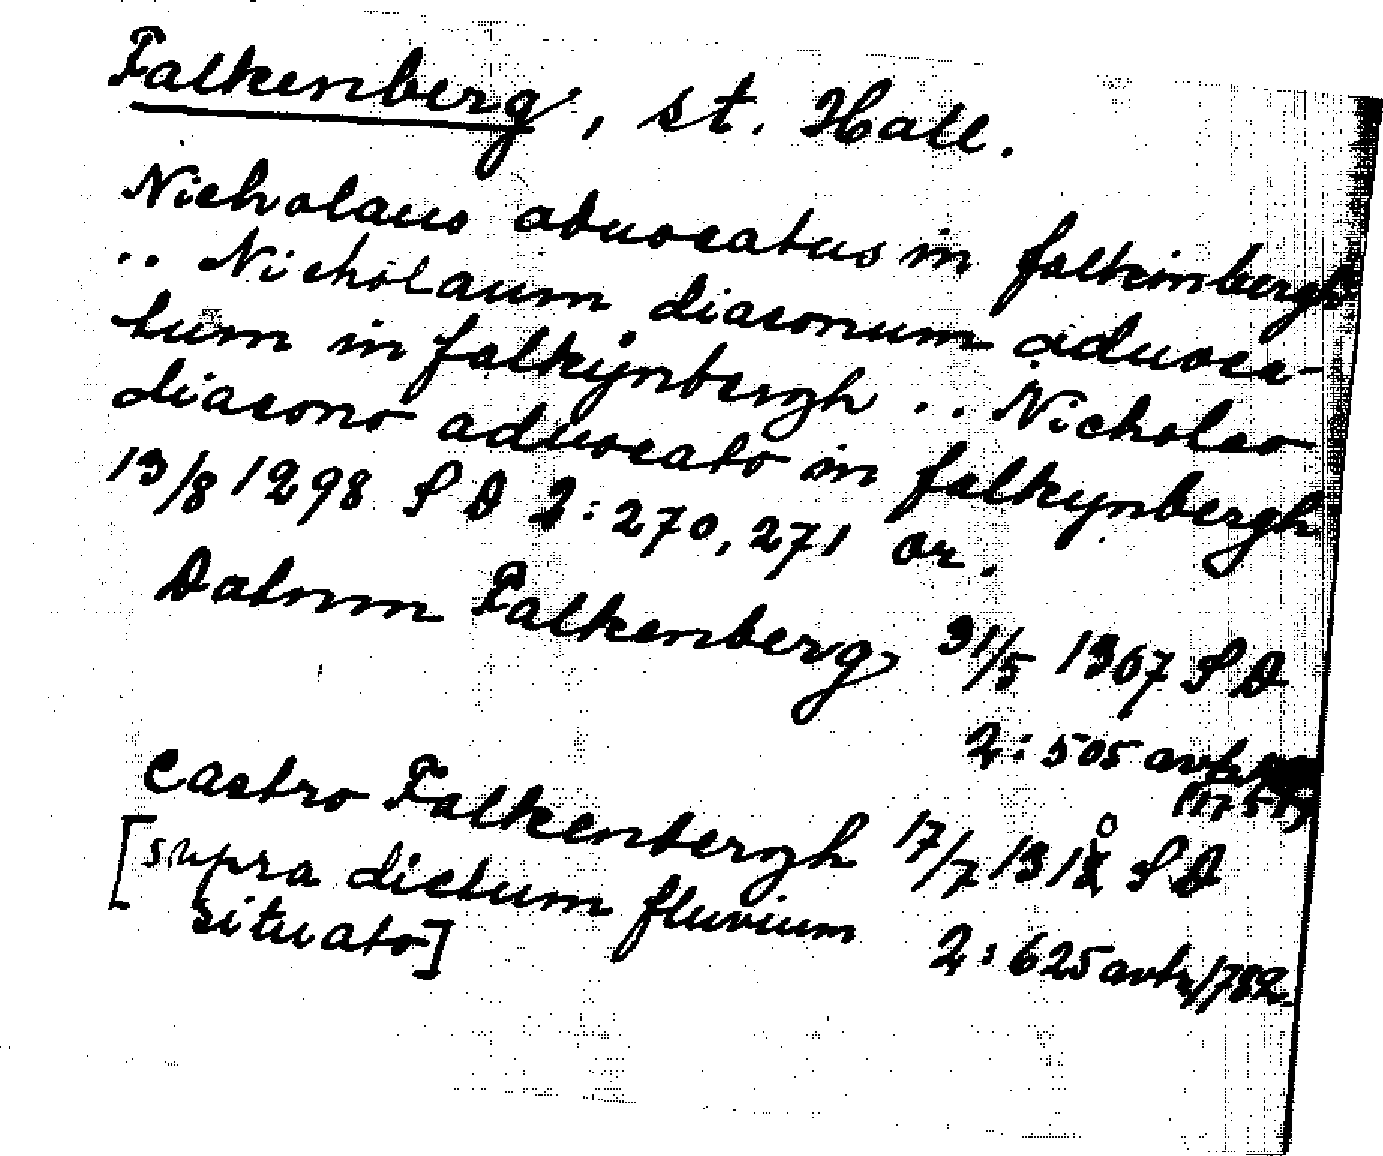 Falkenberg, st. Hall.
Nicholaus aduocatus in falkinbergh
.. Nicholaum diaconum aduoca-
tum in falkijnbergh .. Nicholao
diacono aduocato in falkynbergh
13/8 1298 SD 2:270, 271 or.
Datum Falkenberg 31/5 1307 SD
2:505 avskr
Castro Falkenbergh 17/7 1310 SD
[supra dictum fluvium 2:625 avskr 1782
situato]